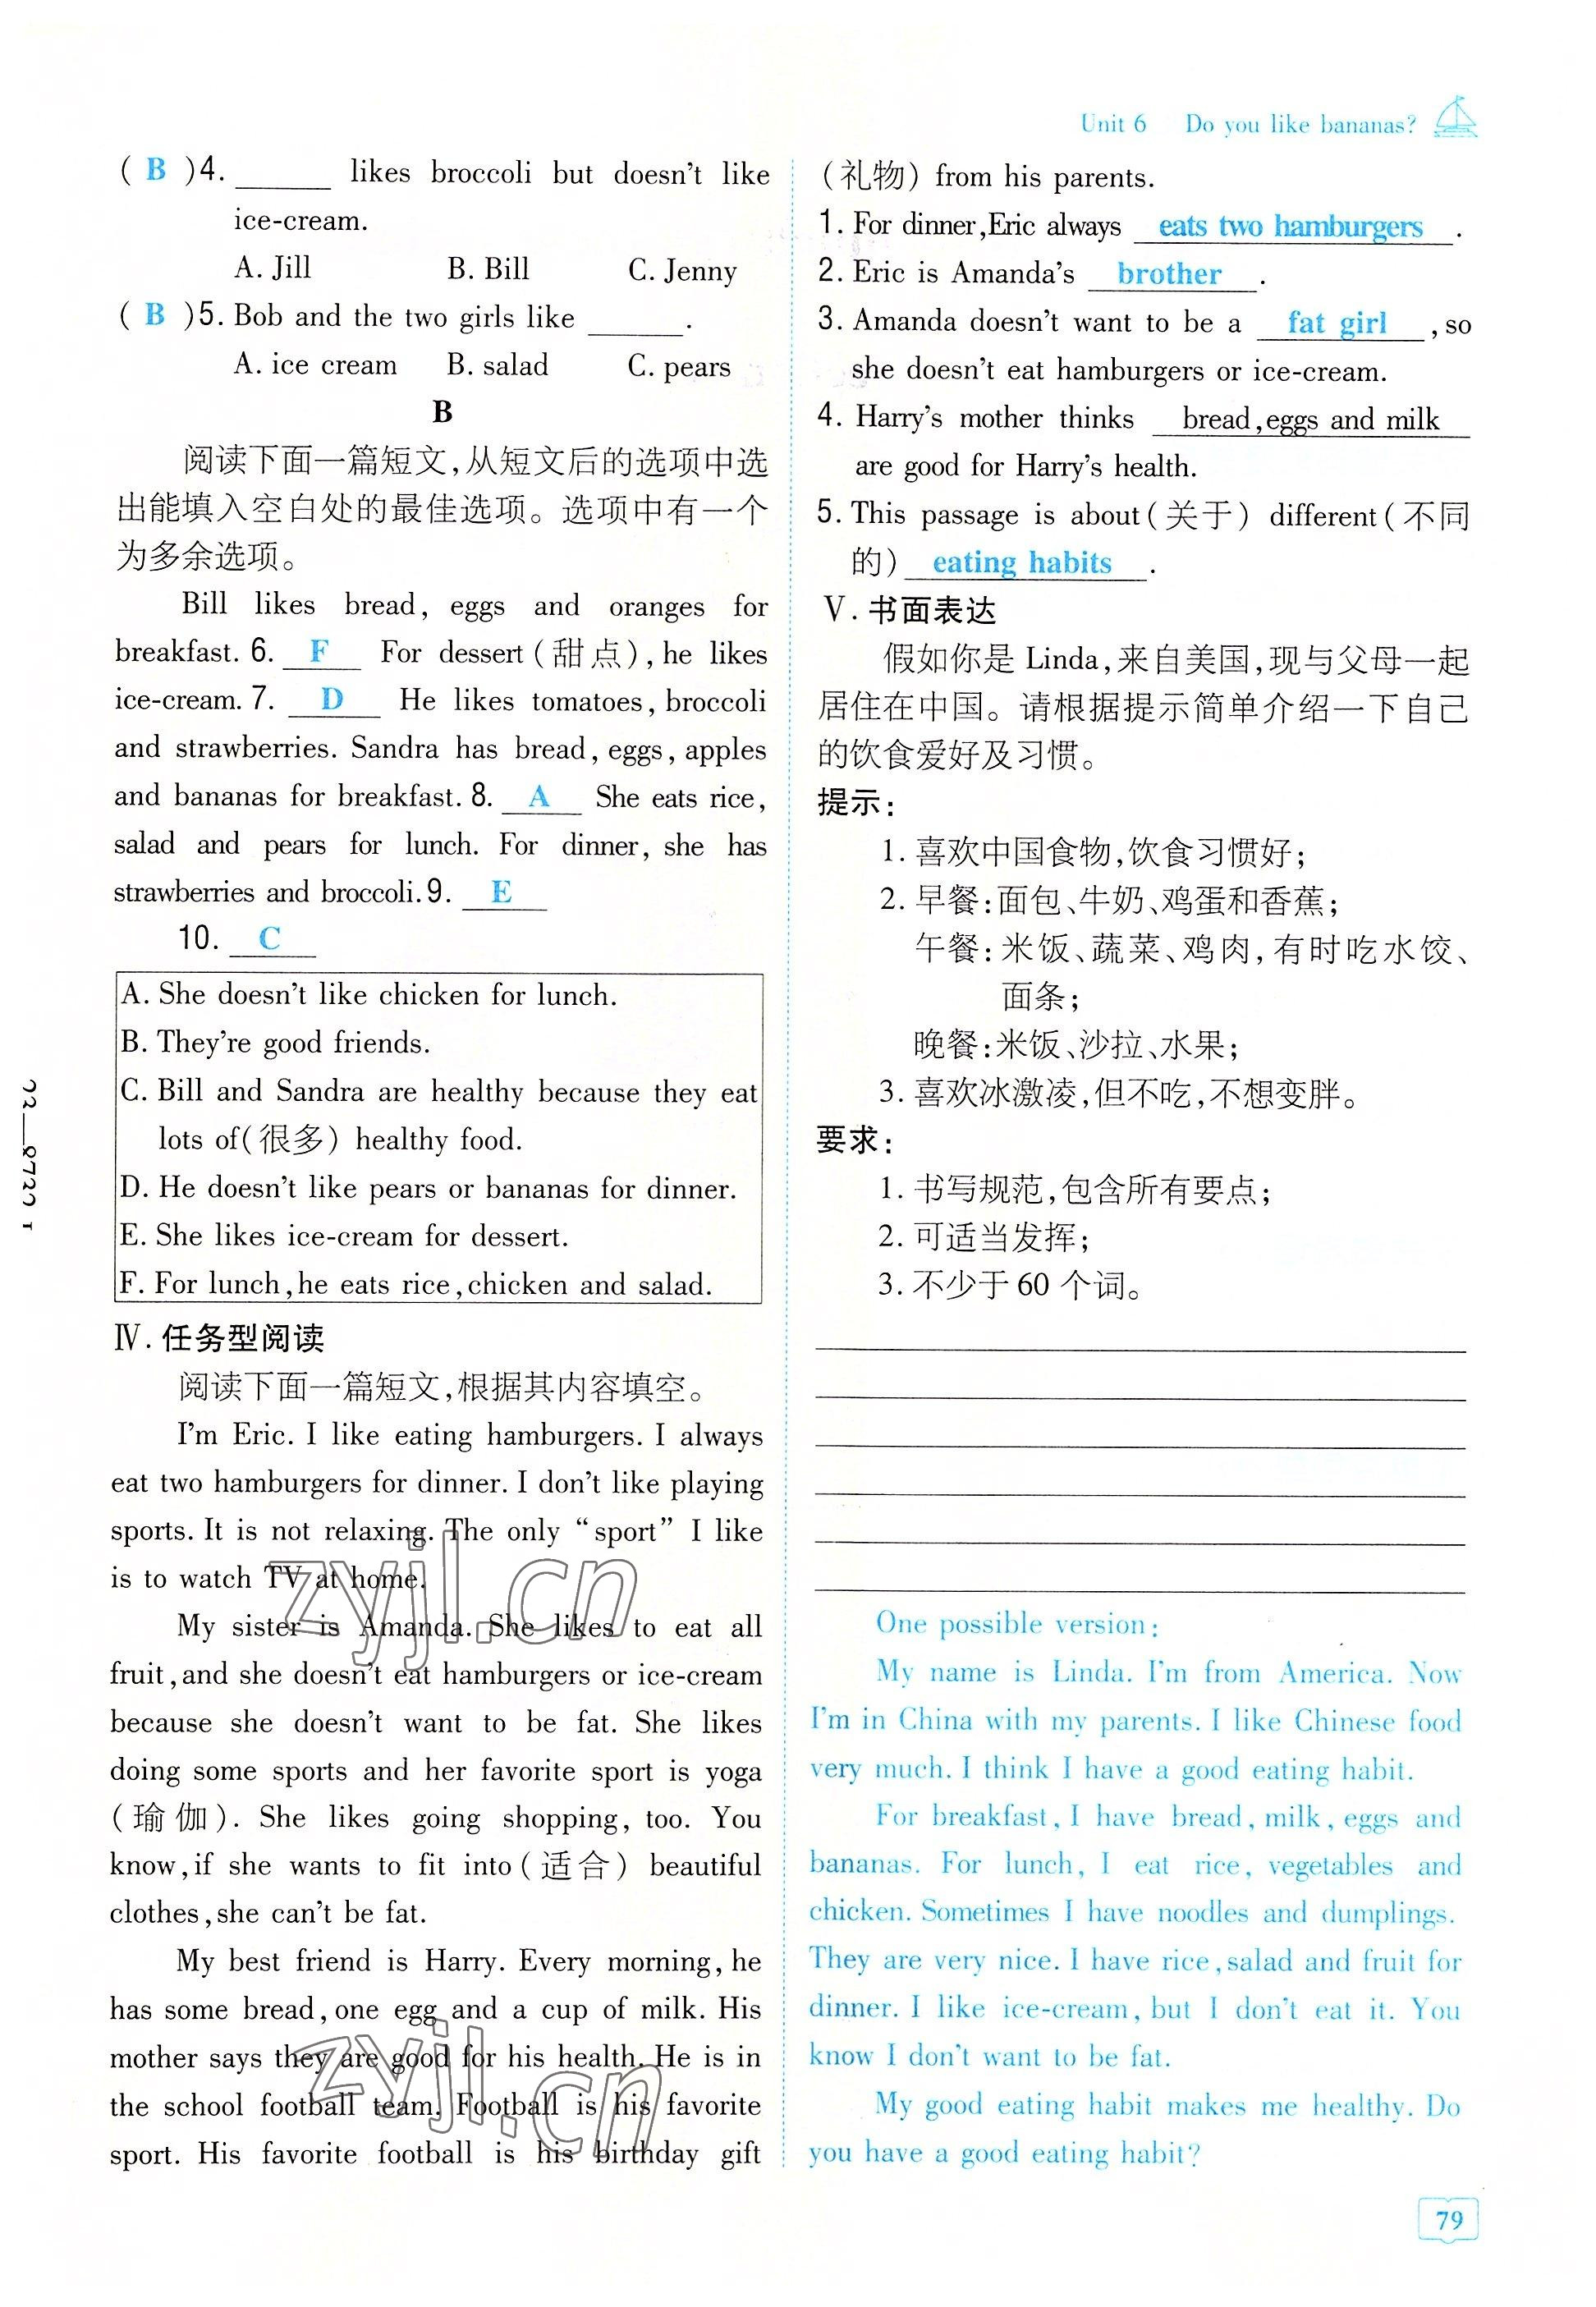 Unit 6 Do you like bananas?
( B )4. ______ likes broccoli but doesn't like
ice-cream.
A. Jill B. Bill C. Jenny
( B )5. Bob and the two girls like ______.
A. ice cream B. salad C. pears
B
阅读下面一篇短文,从短文后的选项中选
出能填入空白处的最佳选项。选项中有一个
为多余选项。
Bill likes bread, eggs and oranges for
breakfast. 6. F For dessert(甜点),he likes
ice-cream. 7. D He likes tomatoes, broccoli
and strawberries. Sandra has bread, eggs, apples
and bananas for breakfast. 8. A She eats rice,
salad and pears for lunch. For dinner, she has
strawberries and broccoli. 9. E
10. C
A. She doesn't like chicken for lunch.
B. They're good friends.
C. Bill and Sandra are healthy because they eat
lots of(很多) healthy food.
D. He doesn't like pears or bananas for dinner.
E. She likes ice-cream for dessert.
F. For lunch,he eats rice,chicken and salad.
Ⅳ. 任务型阅读
阅读下面一篇短文,根据其内容填空。
I'm Eric. I like eating hamburgers. I always
eat two hamburgers for dinner. I don't like playing
sports. It is not relaxing. The only “sport” I like
is to watch TV at home.
My sister is Amanda. She likes to eat all
fruit,and she doesn't eat hamburgers or ice-cream
because she doesn't want to be fat. She likes
doing some sports and her favorite sport is yoga
(瑜伽). She likes going shopping, too. You
know,if she wants to fit into(适合) beautiful
clothes,she can't be fat.
My best friend is Harry. Every morning,he
has some bread,one egg and a cup of milk. His
mother says they are good for his health. He is in
the school football team. Football is his favorite
sport. His favorite football is his birthday gift
(礼物) from his parents.
1. For dinner,Eric always eats two hamburgers .
2. Eric is Amanda's brother .
3. Amanda doesn't want to be a fat girl ,so
she doesn't eat hamburgers or ice-cream.
4. Harry's mother thinks bread,eggs and milk
are good for Harry's health.
5. This passage is about(关于) different(不同
的) eating habits .
Ⅴ. 书面表达
假如你是 Linda,来自美国,现与父母一起
居住在中国。请根据提示简单介绍一下自己
的饮食爱好及习惯。
提示:
1. 喜欢中国食物,饮食习惯好;
2. 早餐:面包、牛奶、鸡蛋和香蕉;
午餐:米饭、蔬菜、鸡肉,有时吃水饺、
面条;
晚餐:米饭、沙拉、水果;
3. 喜欢冰激凌,但不吃,不想变胖。
要求:
1. 书写规范,包含所有要点;
2. 可适当发挥;
3. 不少于 60 个词。
One possible version:
My name is Linda. I'm from America. Now
I'm in China with my parents. I like Chinese food
very much. I think I have a good eating habit.
For breakfast, I have bread, milk, eggs and
bananas. For lunch, I eat rice, vegetables and
chicken. Sometimes I have noodles and dumplings.
They are very nice. I have rice,salad and fruit for
dinner. I like ice-cream, but I don't eat it. You
know I don't want to be fat.
My good eating habit makes me healthy. Do
you have a good eating habit?
79
zyjl.cn
zyjl.cn